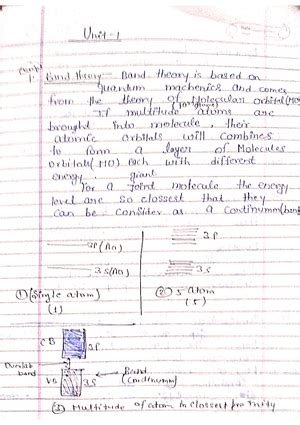 Unit - 1
1. Band theory - Band theory is based on
quantum machenics and comes
from the theory of Molecular orbital (MO)
If multitude atoms are
brought into molecule, their
atomic orbitals will combines
to form a layer of Molecules
orbitals (MO) each with different
energy.
For a giant joint molecule the energy
level are so closest that they
can be consider as a continumm (band
3P(AO)
3P
3S(AO)
3S
① (Single atom)
(1)
② 5 atom
(5)
CB
3P
band
VB
3S
Band
(Continumm)
③ Multitude of atom in closest proximity